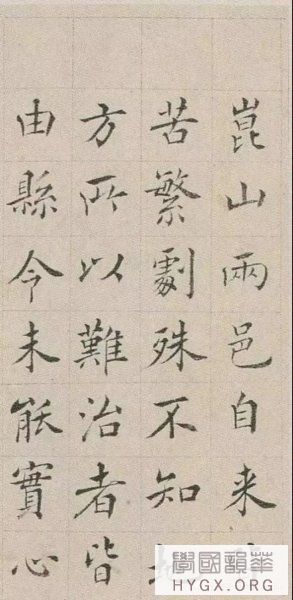 崑山兩邑自来
苦繁劇殊不知
方所以難治者皆
由縣令未能實心
華韻國學
HYGX.ORG